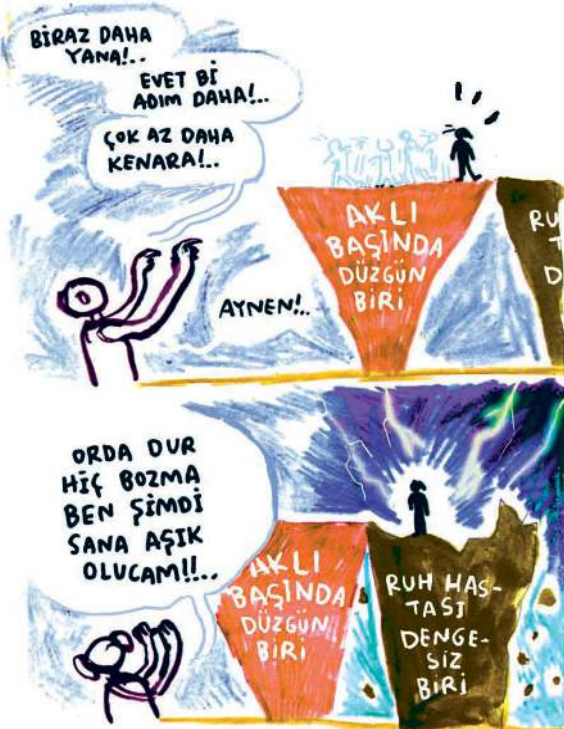 BİRAZ DAHA
YANA!..
EVET Bİ
ADIM DAHA!..
ÇOK AZ DAHA
KENARA!..
AYNEN!..
AKLI
BAŞINDA
DÜZGÜN
BİRİ
RU
T
D
ORDA DUR
HİÇ BOZMA
BEN ŞİMDİ
SANA AŞIK
OLUCAM!!..
AKLI
BAŞINDA
DÜZGÜN
BİRİ
RUH HAS-
TASI
DENGE-
SİZ
BİRİ